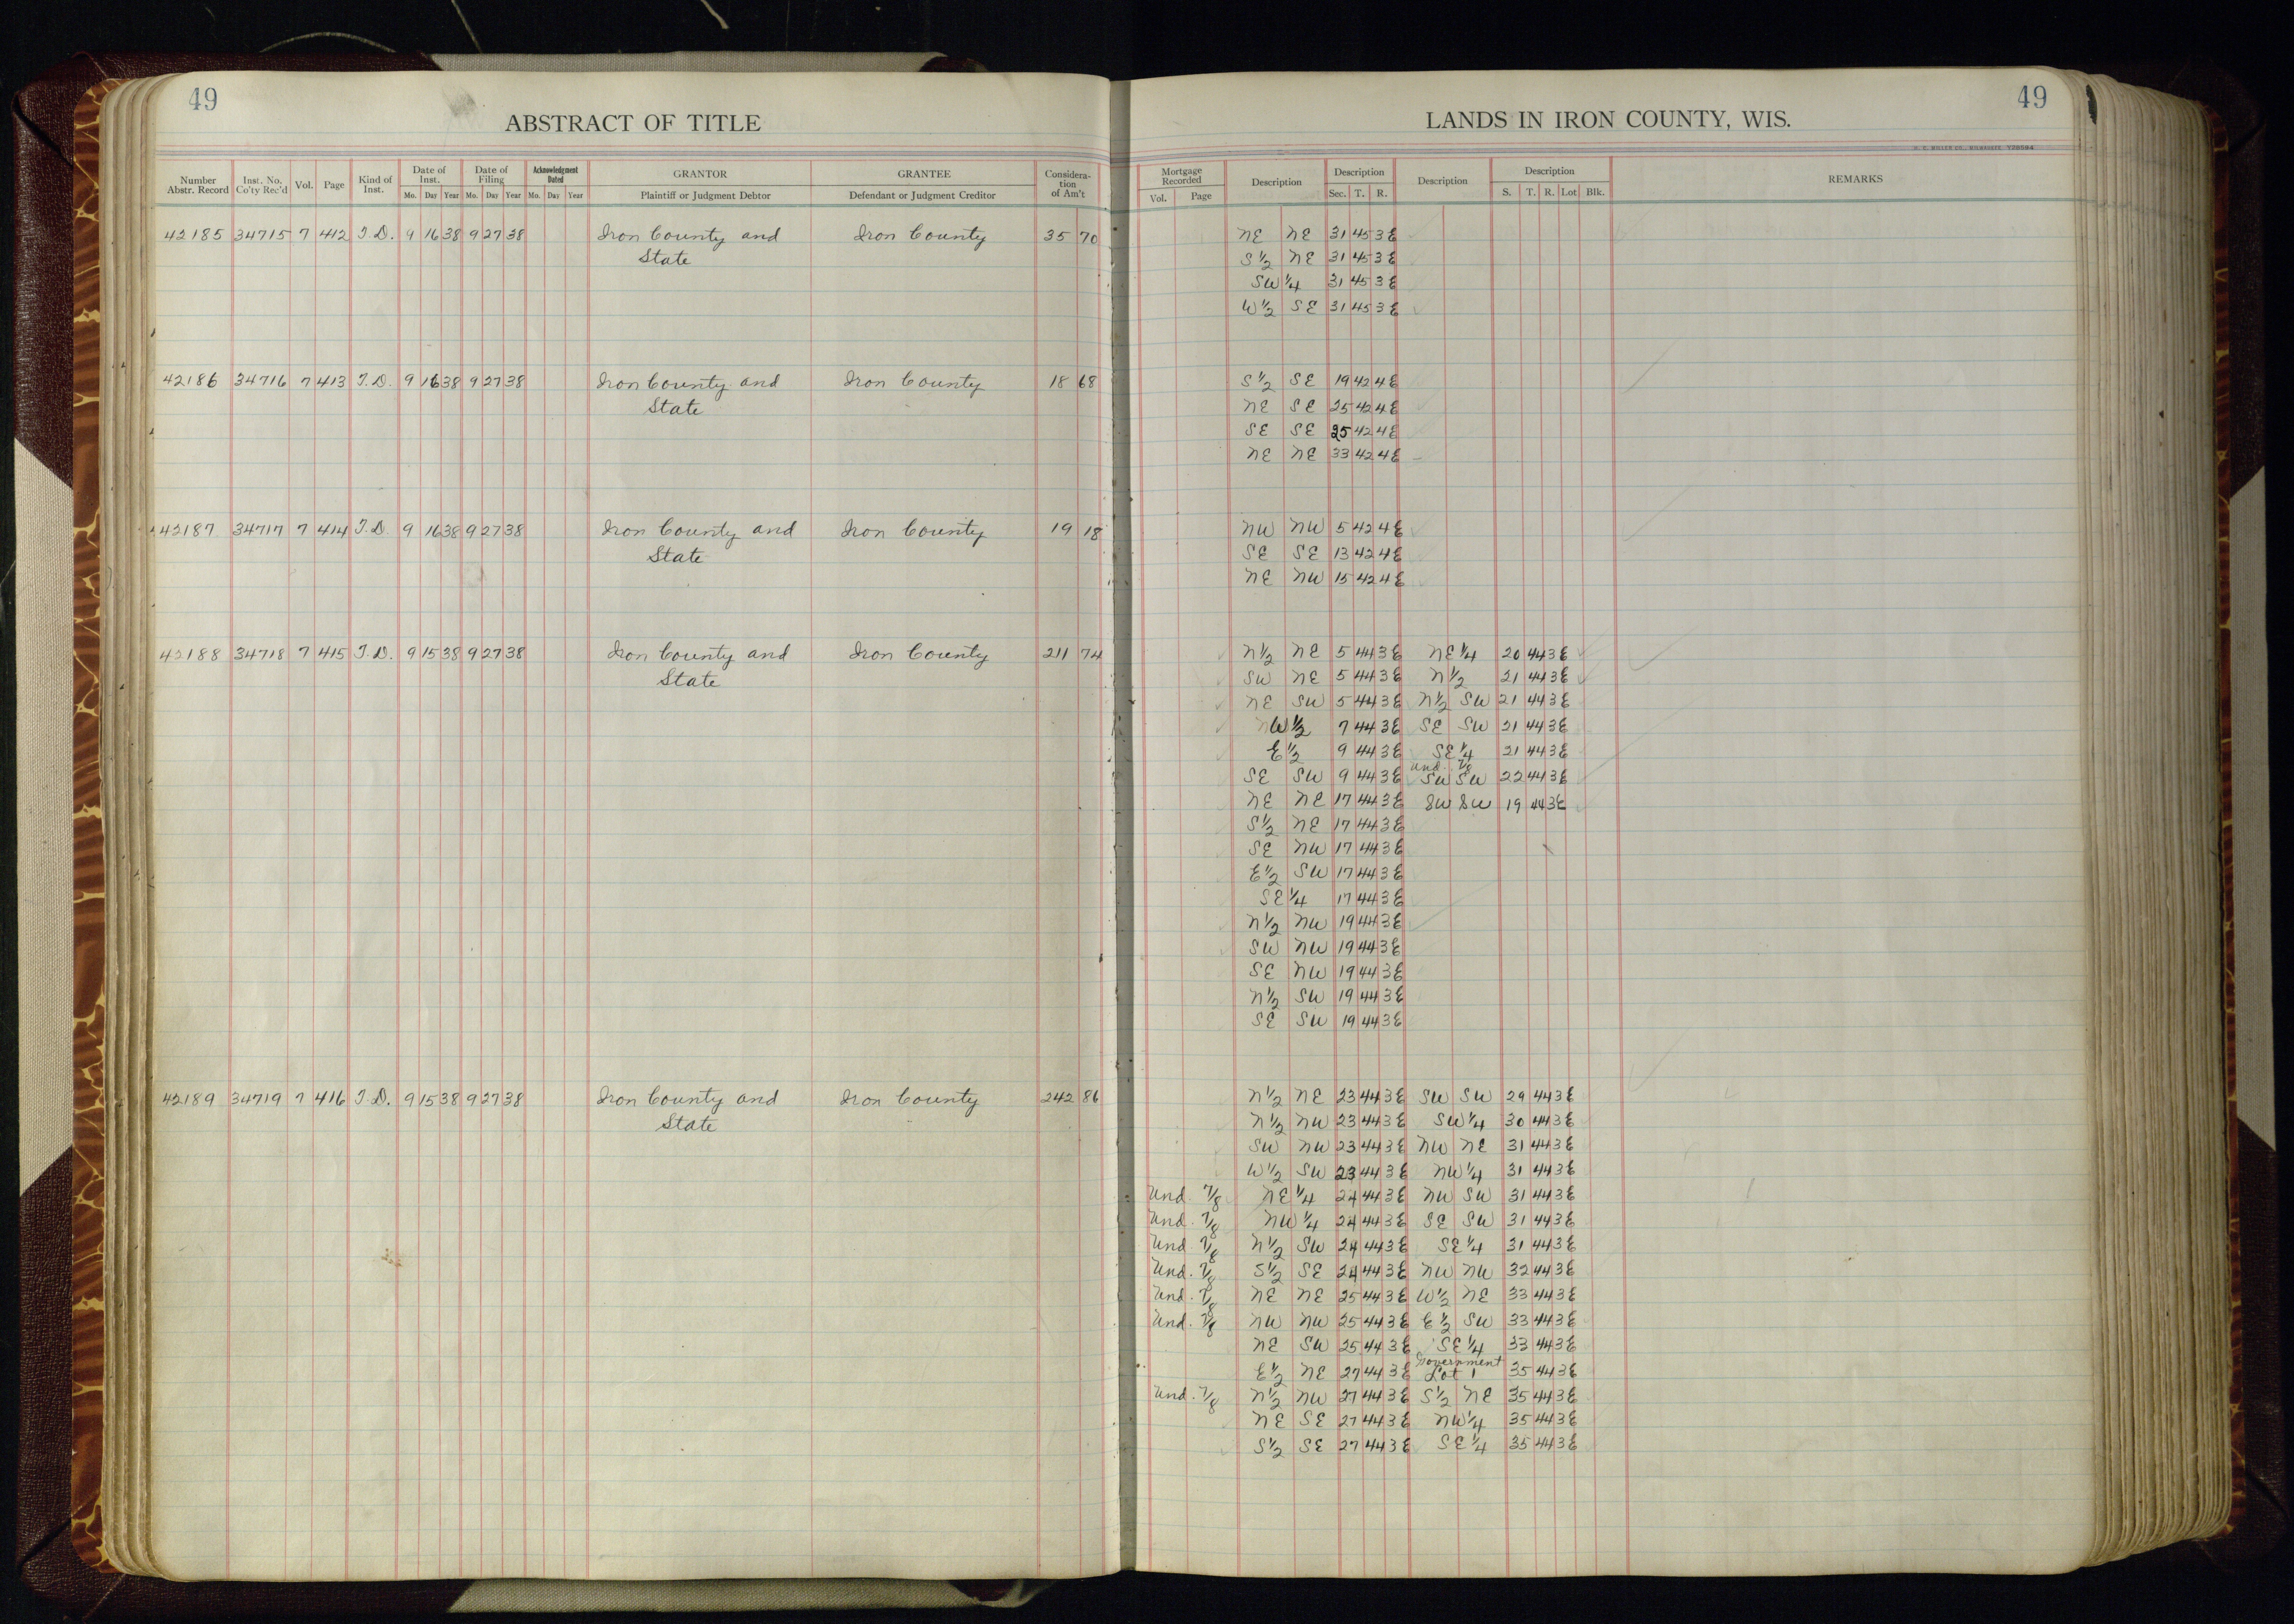 49
ABSTRACT OF TITLE
Number Abstr. Record | Inst. No. Co'ty Rec'd | Vol. | Page | Kind of Inst. | Date of Inst. Mo. Day Year | Date of Filing Mo. Day Year | Acknowledgment Dated Mo. Day Year | GRANTOR Plaintiff or Judgment Debtor | GRANTEE Defendant or Judgment Creditor | Considera-tion of Am't
42185 34715 7 412 T.D. 9 16 38 9 27 38 Iron County and Iron County 35 70
State
42186 34716 7 413 T.D. 9 16 38 9 27 38 Iron County and Iron County 18 68
State
42187 34717 7 414 T.D. 9 16 38 9 27 38 Iron County and Iron County 19 18
State
42188 34718 7 415 T.D. 9 15 38 9 27 38 Iron County and Iron County 211 74
State
42189 34719 7 416 T.D. 9 15 38 9 27 38 Iron County and Iron County 242 86
State
49
LANDS IN IRON COUNTY, WIS.
Mortgage Recorded Vol. Page | Description | Description Sec. T. R. | Description | Description S. T. R. Lot Blk. | REMARKS
NE NE 31 45 3E
S½ NE 31 45 3E
SW¼ 31 45 3E
W½ SE 31 45 3E
S½ SE 19 42 4E
NE SE 25 42 4E
SE SE 25 42 4E
NE NE 33 42 4E
NW NW 5 42 4E
SE SE 13 42 4E
NE NW 15 42 4E
N½ NE 5 44 3E NE¼ 20 44 3E
SW NE 5 44 3E N½ 21 44 3E
NE SW 5 44 3E N½ SW 21 44 3E
NW½ 7 44 3E SE SW 21 44 3E
E½ 9 44 3E SE¼ 21 44 3E
Und. 7/8
SE SW 9 44 3E SW SW 22 44 3E
NE NE 17 44 3E SW SW 19 44 3E
S½ NE 17 44 3E
SE NW 17 44 3E
E½ SW 17 44 3E
SE¼ 17 44 3E
N½ NW 19 44 3E
SW NW 19 44 3E
SE NW 19 44 3E
N½ SW 19 44 3E
SE SW 19 44 3E
N½ NE 23 44 3E SW SW 29 44 3E
N½ NW 23 44 3E SW¼ 30 44 3E
SW NW 23 44 3E NW NE 31 44 3E
W½ SW 23 44 3E NW¼ 31 44 3E
Und. 7/8 NE¼ 24 44 3E NW SW 31 44 3E
Und. 7/8 NW¼ 24 44 3E SE SW 31 44 3E
Und. 7/8 N½ SW 24 44 3E SE¼ 31 44 3E
Und. 7/8 S½ SE 24 44 3E NW NW 32 44 3E
Und. 7/8 NE NE 25 44 3E W½ NE 33 44 3E
Und. 7/8 NW NW 25 44 3E E½ SW 33 44 3E
NE SW 25 44 3E SE¼ 33 44 3E
Government
E½ NE 27 44 3E Lot 1 35 44 3E
Und. 7/8 N½ NW 27 44 3E S½ NE 35 44 3E
NE SE 27 44 3E NW¼ 35 44 3E
S½ SE 27 44 3E SE¼ 35 44 3E